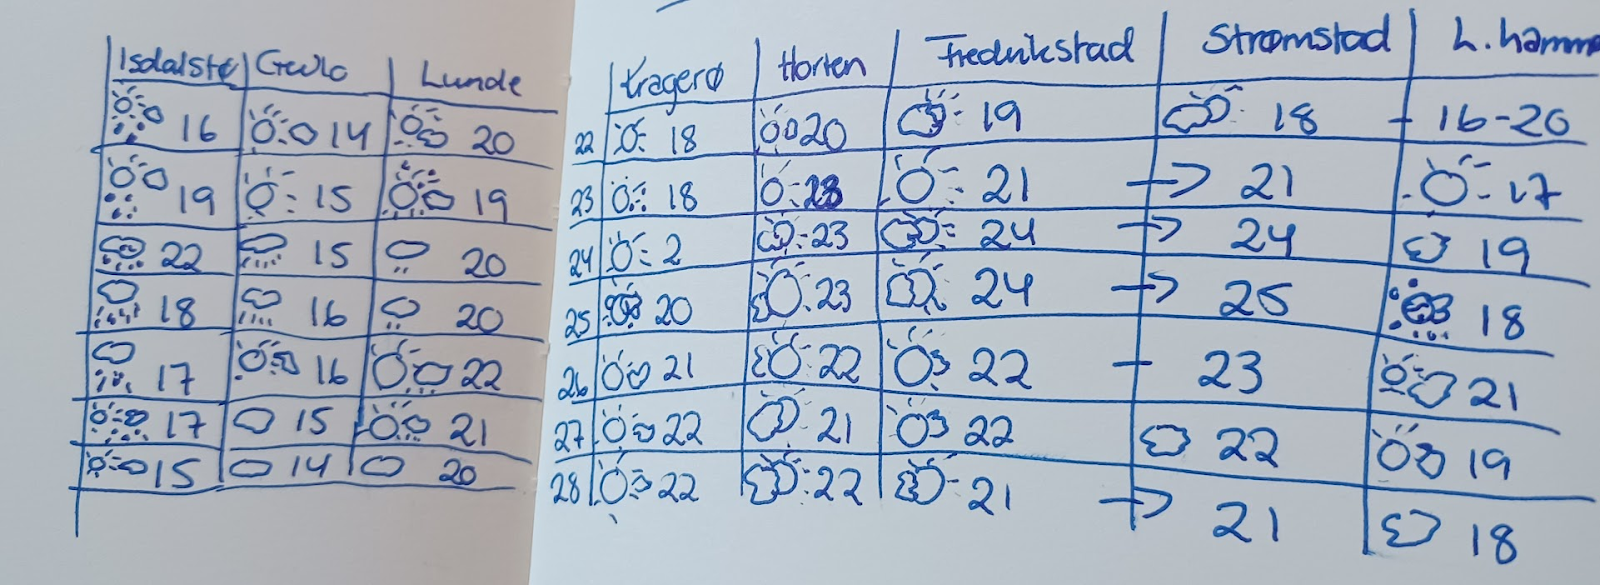 Isdalstø Geilo Lunde Kragerø Horten Fredrikstad Strømstad L.hamme
16 14 20 22 18 20 19 18 - 16-20
19 15 19 23 18 21 → 21 17
22 15 20 24 2 23 24 → 24 19
18 16 20 25 20 23 24 → 25 18
17 16 22 26 21 22 22 - 23 21
17 15 21 27 22 21 22 22 19
15 14 20 28 22 22 21 → 21 18